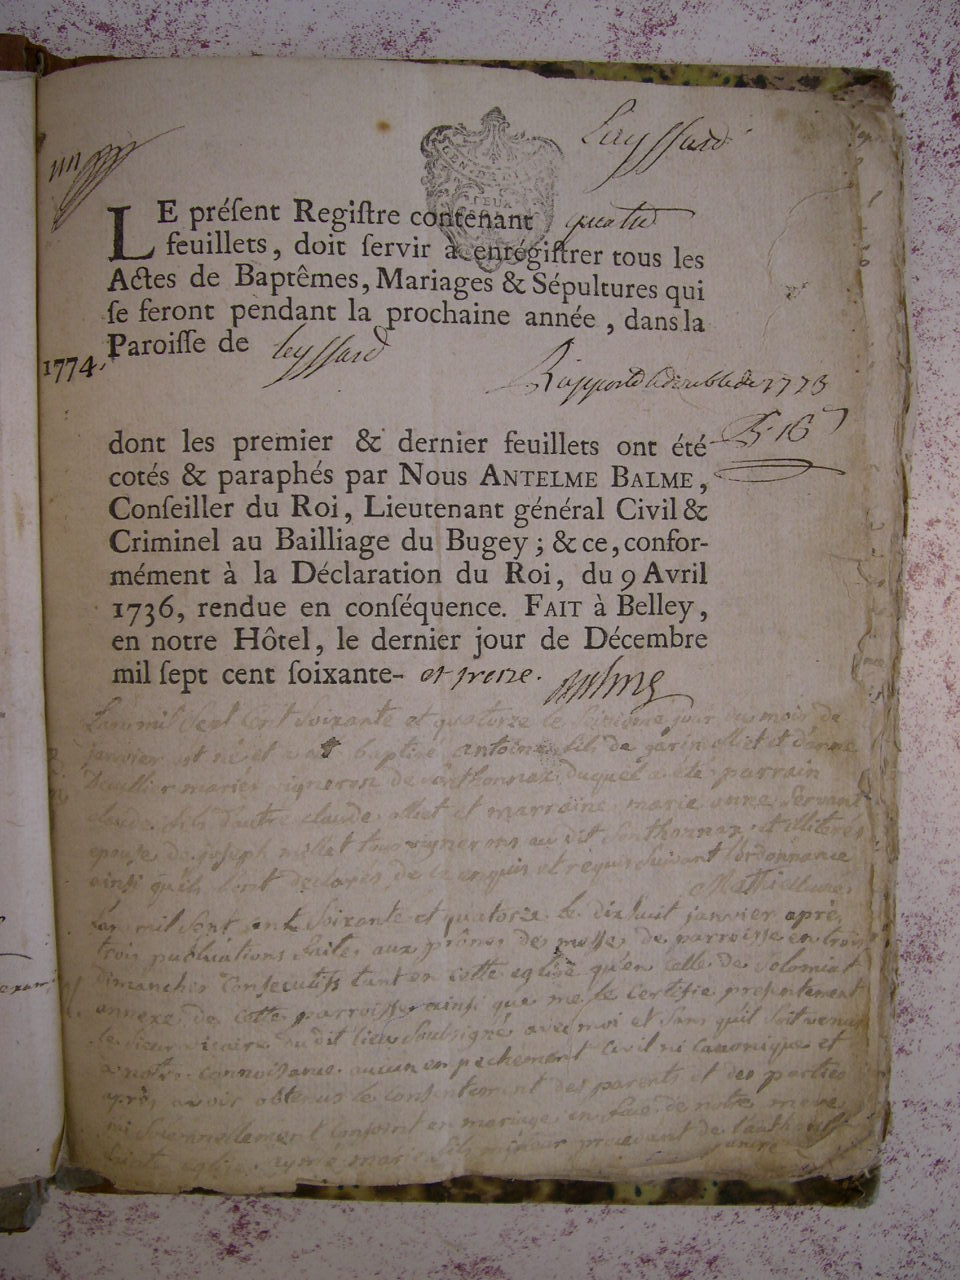 Leyssard
LE préſent Regiſtre contenant quatre
feuillets, doit ſervir à enrégiſtrer tous les
Actes de Baptêmes, Mariages & Sépultures qui
ſe feront pendant la prochaine année, dans la
1774. Paroiſſe de leyssard
Rapporté 1773
dont les premier & dernier feuillets ont été
cotés & paraphés par Nous ANTELME BALME,
Conſeiller du Roi, Lieutenant général Civil &
Criminel au Bailliage du Bugey ; & ce, confor-
mément à la Déclaration du Roi, du 9 Avril
1736, rendue en conſéquence. FAIT à Belley,
en notre Hôtel, le dernier jour de Décembre
mil ſept cent ſoixante- et treize. Balme
L'an mil sept cent soixante et quatorze le seizieme jour du mois de
janvier est né et a été baptisé antoine fils de
mariés vignerons de duquel a été parrain
claude fils d'autre claude et marraine marie anne servant
epouse de joseph tous vignerons au dit et illiterés
ainsi qu'ils l'ont declarés de ce enquis et requis suivant l'ordonnance
L'an mil sept cent soixante et quatorze le dixhuit janvier après
trois publications faites aux prônes des messes de parroisse en trois
dimanches consecutifs tant en cette eglise qu'en celle de Solomiat
annexe de cette parroisse ainsi que me le certifie presentement
le sieur vicaire du dit lieu soussigné avec moi et sans qu'il soit venu
à notre connoisance aucun empechement civil ni canonique et
après avoir obtenus le consentement des parents et des parties
solennellement conjoint en mariage en face de notre mere